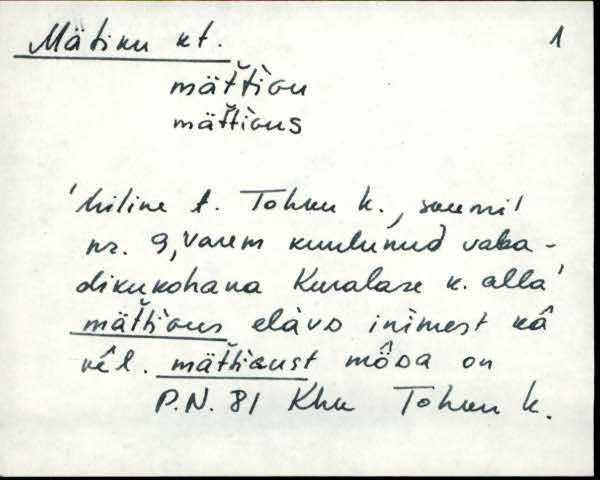 Mätiku kt. 1
mät̆t̀iɔu
mät̆t̀iɔus
'hiline t. Tohvri k., suurus
nr. 9, varem kuulunud vaba-
dikukohana Kuralase k. alla'
mät̆t̀iɔus elàvɒ inìmest kâ
vêl. mät̆t̀iɔust mô̬ɒa on
P.N. 81 Khn k.